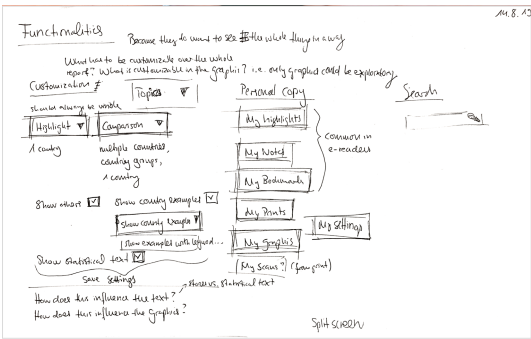 14.8.15
Functionalities
Because they do want to see the whole thing in a way
What has to be customizable over the whole
report? What is customizable in the graphis? i.e. only graphics could be exploratory
Customization
Topics ▼
should always be visible
Highlight ▼
Comparison ▼
1 country
multiple countries,
country groups,
1 country
Show others ☑
Show country examples ☑
Show country example ▼
Show examples with keyword...
Show statistical text ☑
save settings
How does this influence the text?
→ stories vs. statistical text
How does this influence the Graphics?
Personal Copy
My Highlights
My Notes
My Bookmarks
common in
e-readers
My Prints
My Graphis
My Settings
My Scans? (from print)
Search
Splitscreen